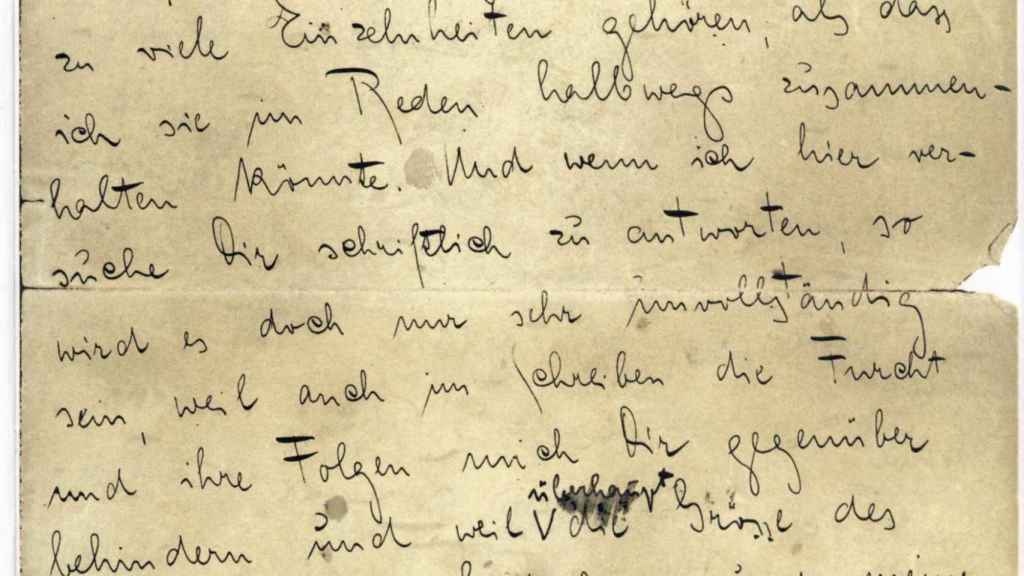 zu viele Einzelnheiten gehören, als dass
ich sie im Reden halbwegs zusammen-
halten könnte. Und wenn ich hier ver-
suche Dir schriftlich zu antworten, so
wird es doch nur sehr unvollständig
sein, weil auch im Schreiben die Furcht
und ihre Folgen mich Dir gegenüber
überhaupt
behindern und weil V die Grösse des